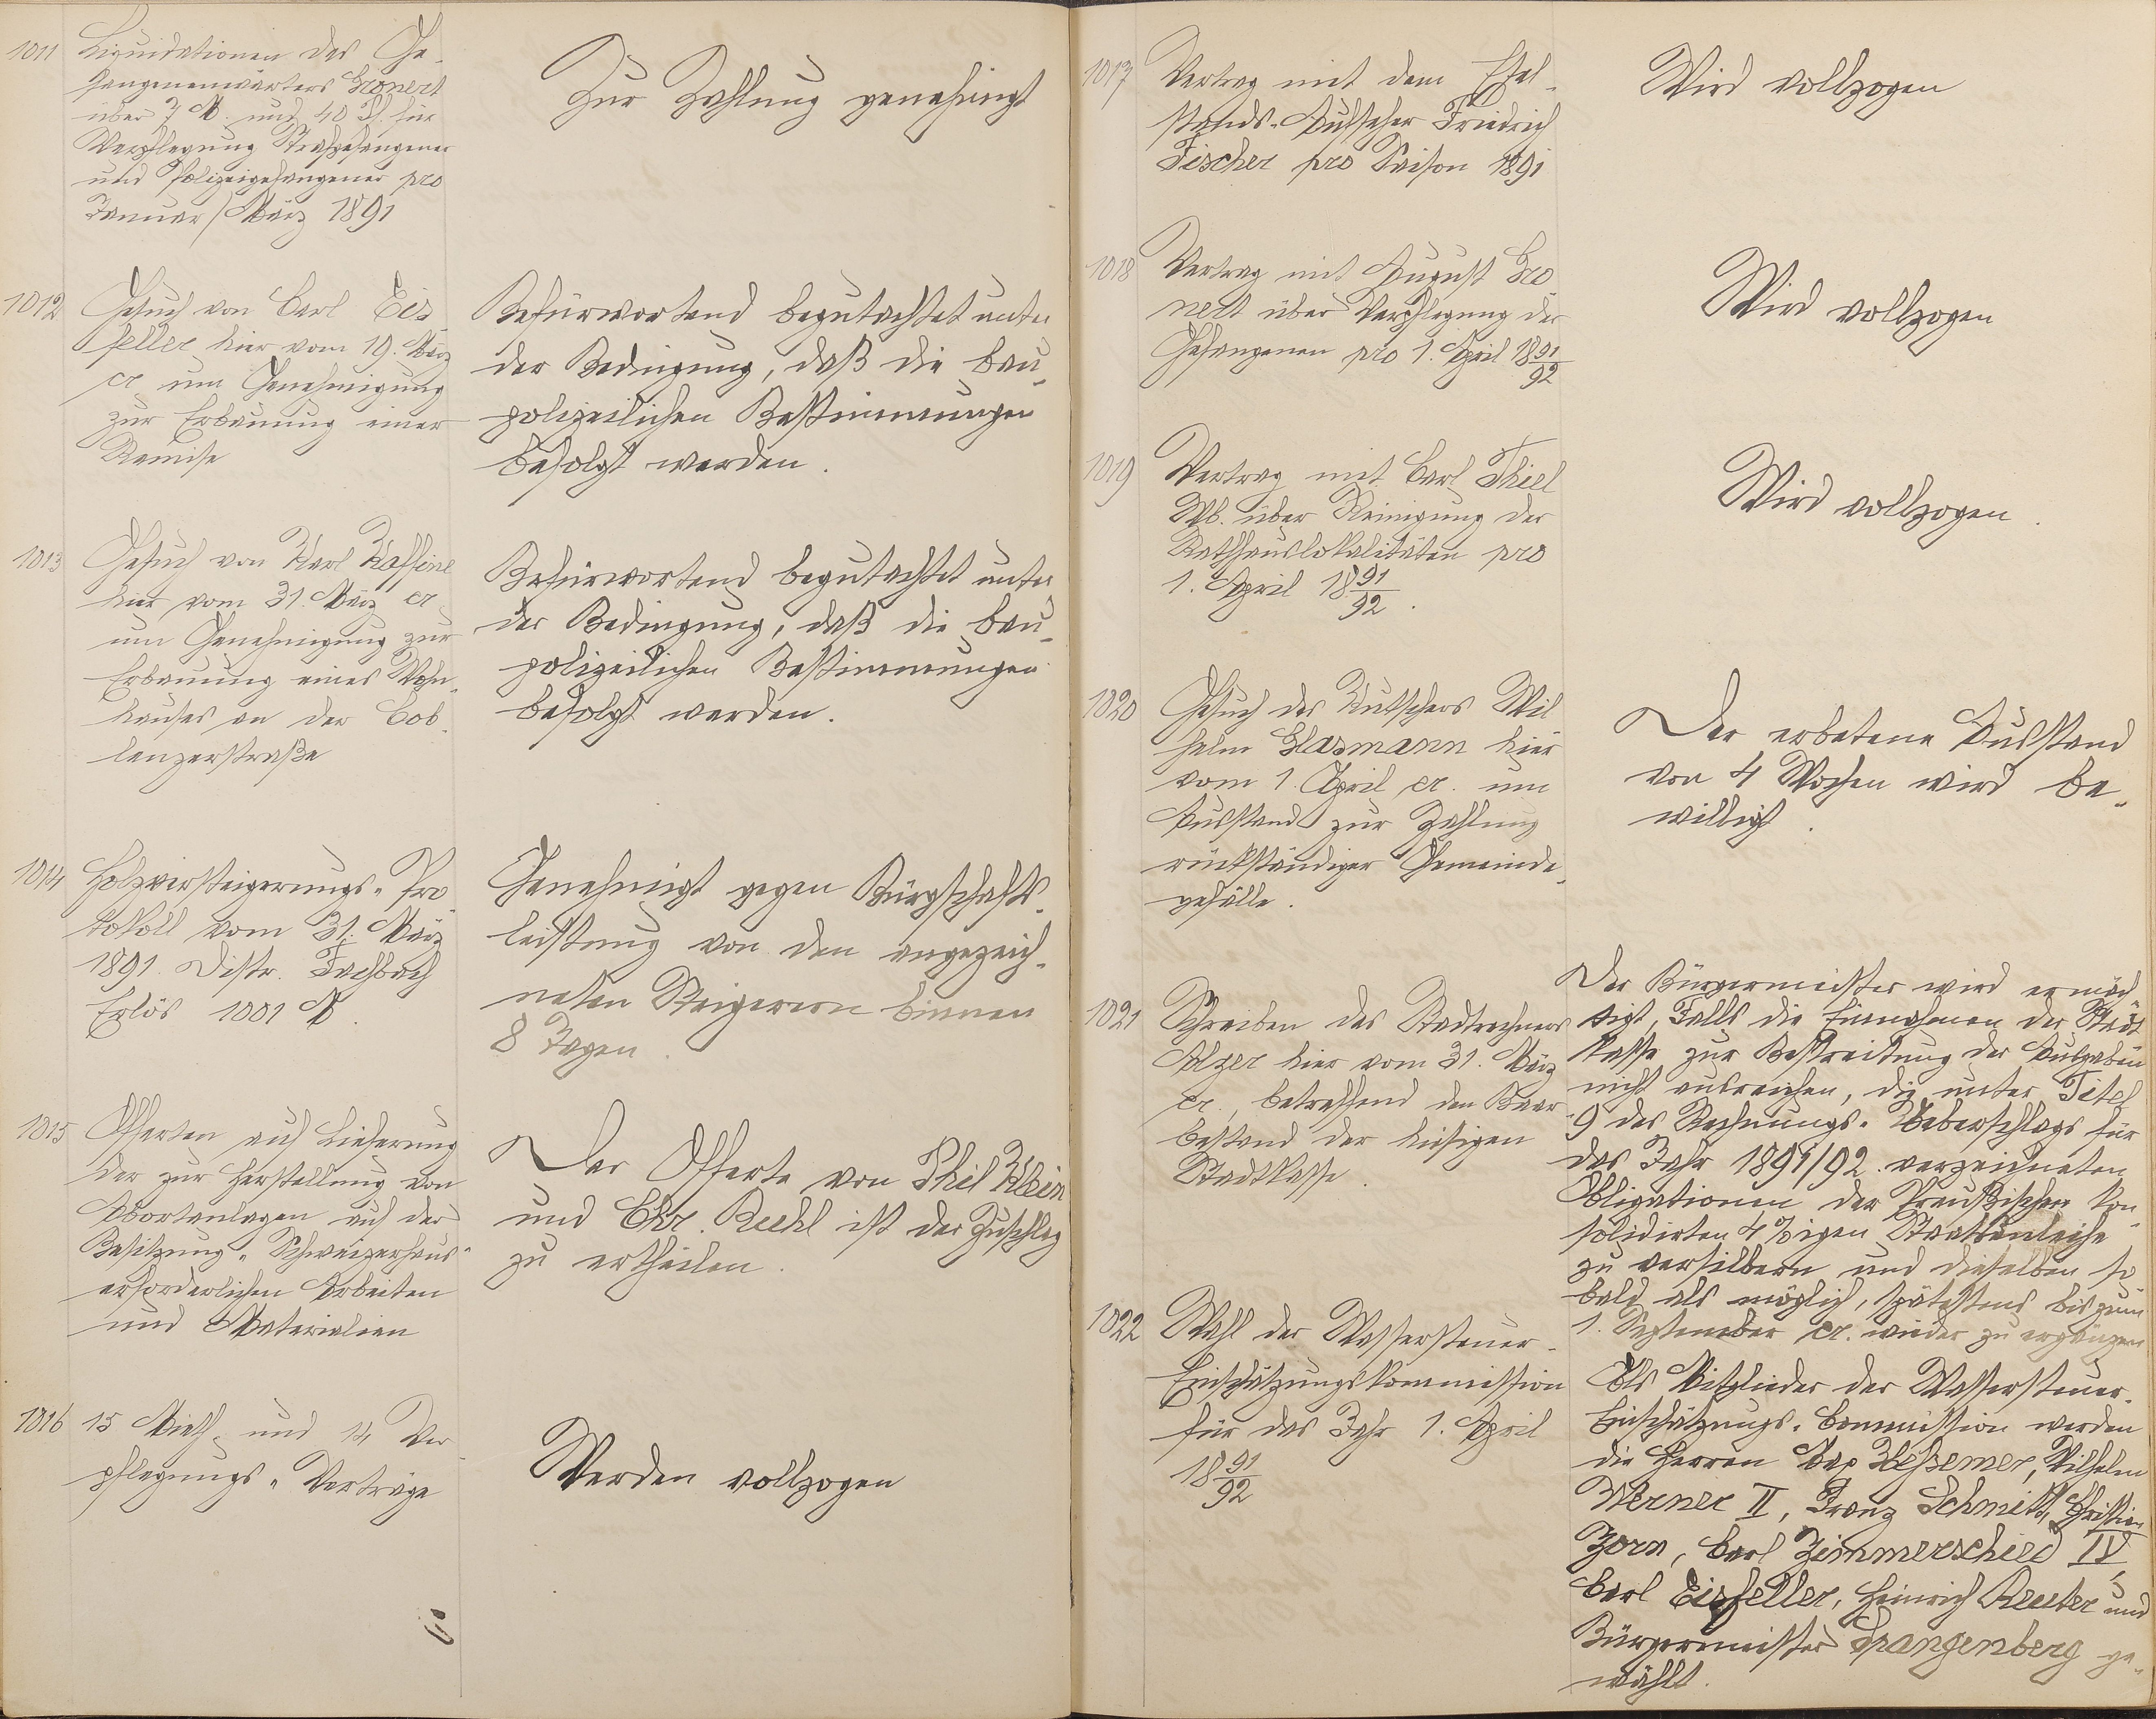 1011
Liquidationen des Ge-
fangenenwärters Gronert
über 7 M. und 40 Pf. für
Verpflegung Strafgefangener
und Polizeigefangener pro
Januar/März 1891
Zur Zahlung genehmigt
1012
Gesuch von Carl Eis
feller hier vom 19. März
cr um Genehmigung
zur Erbauung einer
Remise
Befürwortend begutachtet unter
der Bedingung, daß die bau-
polizeilichen Bestimmungen
befolgt werden.
1013
Gesuch von Karl Kaffine
hier vom 31. März cr.
um Genehmigung zur
Erbauung eines Wohn-
hauses an der Cob-
lenzerstraße
Befürwortend begutachtet unter
der Bedingung, daß die bau-
polizeilichen Bestimmungen
befolgt werden.
1014
Holzversteigerungs-Pro
tokoll vom 31. März
1891. Distr. Fachbach
Erlös 1001 M.
Genehmigt gegen Bürgschafts-
leistung von den angezeich-
neten Steigerern binnen
8 Tagen.
1015
Offerten auf Lieferung
der zur Herstellung von
Abortanlagen auf der
Besitzung "Schweizerhaus"
erforderlichen Arbeiten
und Materialien
Der Offerte von Phil Klein
und Chr. Ruhl ist der Zuschlag
zu ertheilen.
1016
15 Mieth- und 14 Ver
pflegungs-Verträge
Werden vollzogen
1017
Vertrag mit dem Esel-
stands-Aufseher Friedrich
Fischer pro Saison 1891
Wird vollzogen
1018
Vertrag mit August Gro
nert über Verpflegung der
Gefangenen pro 1. April 1891/92
Wird vollzogen
1019
Vertrag mit Carl Thiel
Wb. über Reinigung der
Rathhauslokalitäten pro
1. April 1891/92.
Wird vollzogen.
1020
Gesuch des Kutschers Wil
helm Glasmann hier
vom 1. April cr. um
Ausstand zur Zahlung
rückständiger Gemeinde-
gefälle.
Der erbetene Ausstand
von 4 Wochen wird be-
willigt.
1021
Schreiben des Stadtrechners
Alzer hier vom 31. März
cr., betreffend den Baar-
bestand der hiesigen
Stadtkasse.
Der Bürgermeister wird ermäch-
tigt, Falls die Einnahmen der Stadt
kasse zur Bestreitung der Ausgaben
nicht ausreichen, die unter Titel
9 des Rechnungs-Ueberschlags für
das Jahr 1891/92 verzeichneten
Obligationen der Preußischen kon-
solidirten 4%igen Staatsanleihe
zu versilbern und dieselben so-
bald als möglich, spätestens bis zum
1. September cr. wieder zu ergänzen
1022
Wahl der Wassersteuer-
Einschätzungskommission
für das Jahr 1. April
1891/92
Als Mitglieder der Wassersteuer-
Einschätzungs-Commission werden
die Herren Bap Heßemer, Wilhelm
Werner II, Franz Schmitt, Christian
Zorn, Carl Zimmerschied IV,
Carl Eisfeller, Heinrich Reuter und
Bürgermeister Spangenberg ge-
wählt.